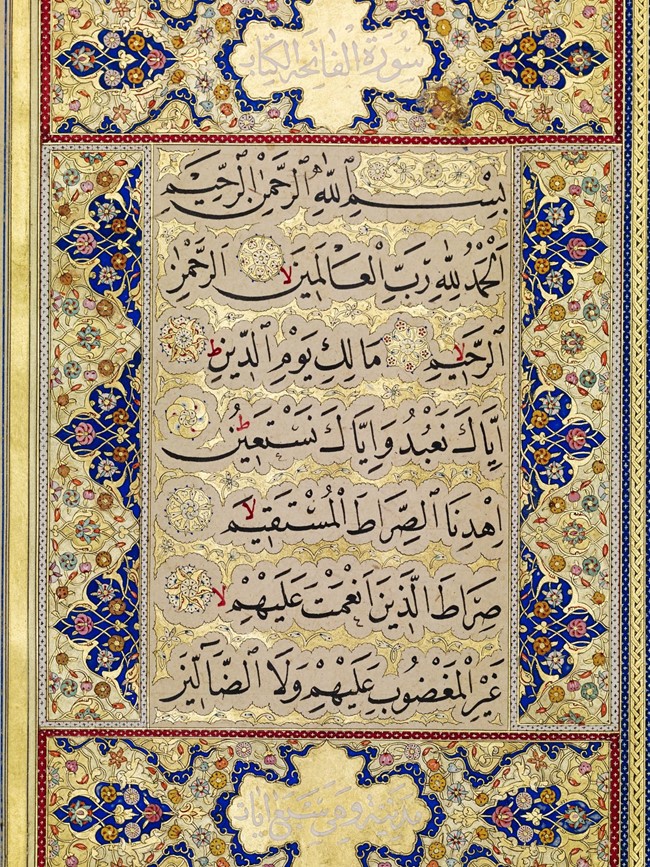 سُورَةُ الفَاتِحَةِ الكِتَاب
بِسْمِ اللّٰهِ الرَّحْمٰنِ الرَّحِيمِ
اَلْحَمْدُ لِلّٰهِ رَبِّ الْعَالَمِينَ لا الرَّحْمٰنِ
الرَّحِيمِ لا مَالِكِ يَوْمِ الدِّينِ ط
اِيَّاكَ نَعْبُدُ وَاِيَّاكَ نَسْتَعِينُ ط
اِهْدِنَا الصِّرَاطَ الْمُسْتَقِيمَ لا
صِرَاطَ الَّذِينَ اَنْعَمْتَ عَلَيْهِمْ لا
غَيْرِ الْمَغْضُوبِ عَلَيْهِمْ وَلَا الضَّالِّينَ
مدنية وَهِيَ سَبْعُ ايَات